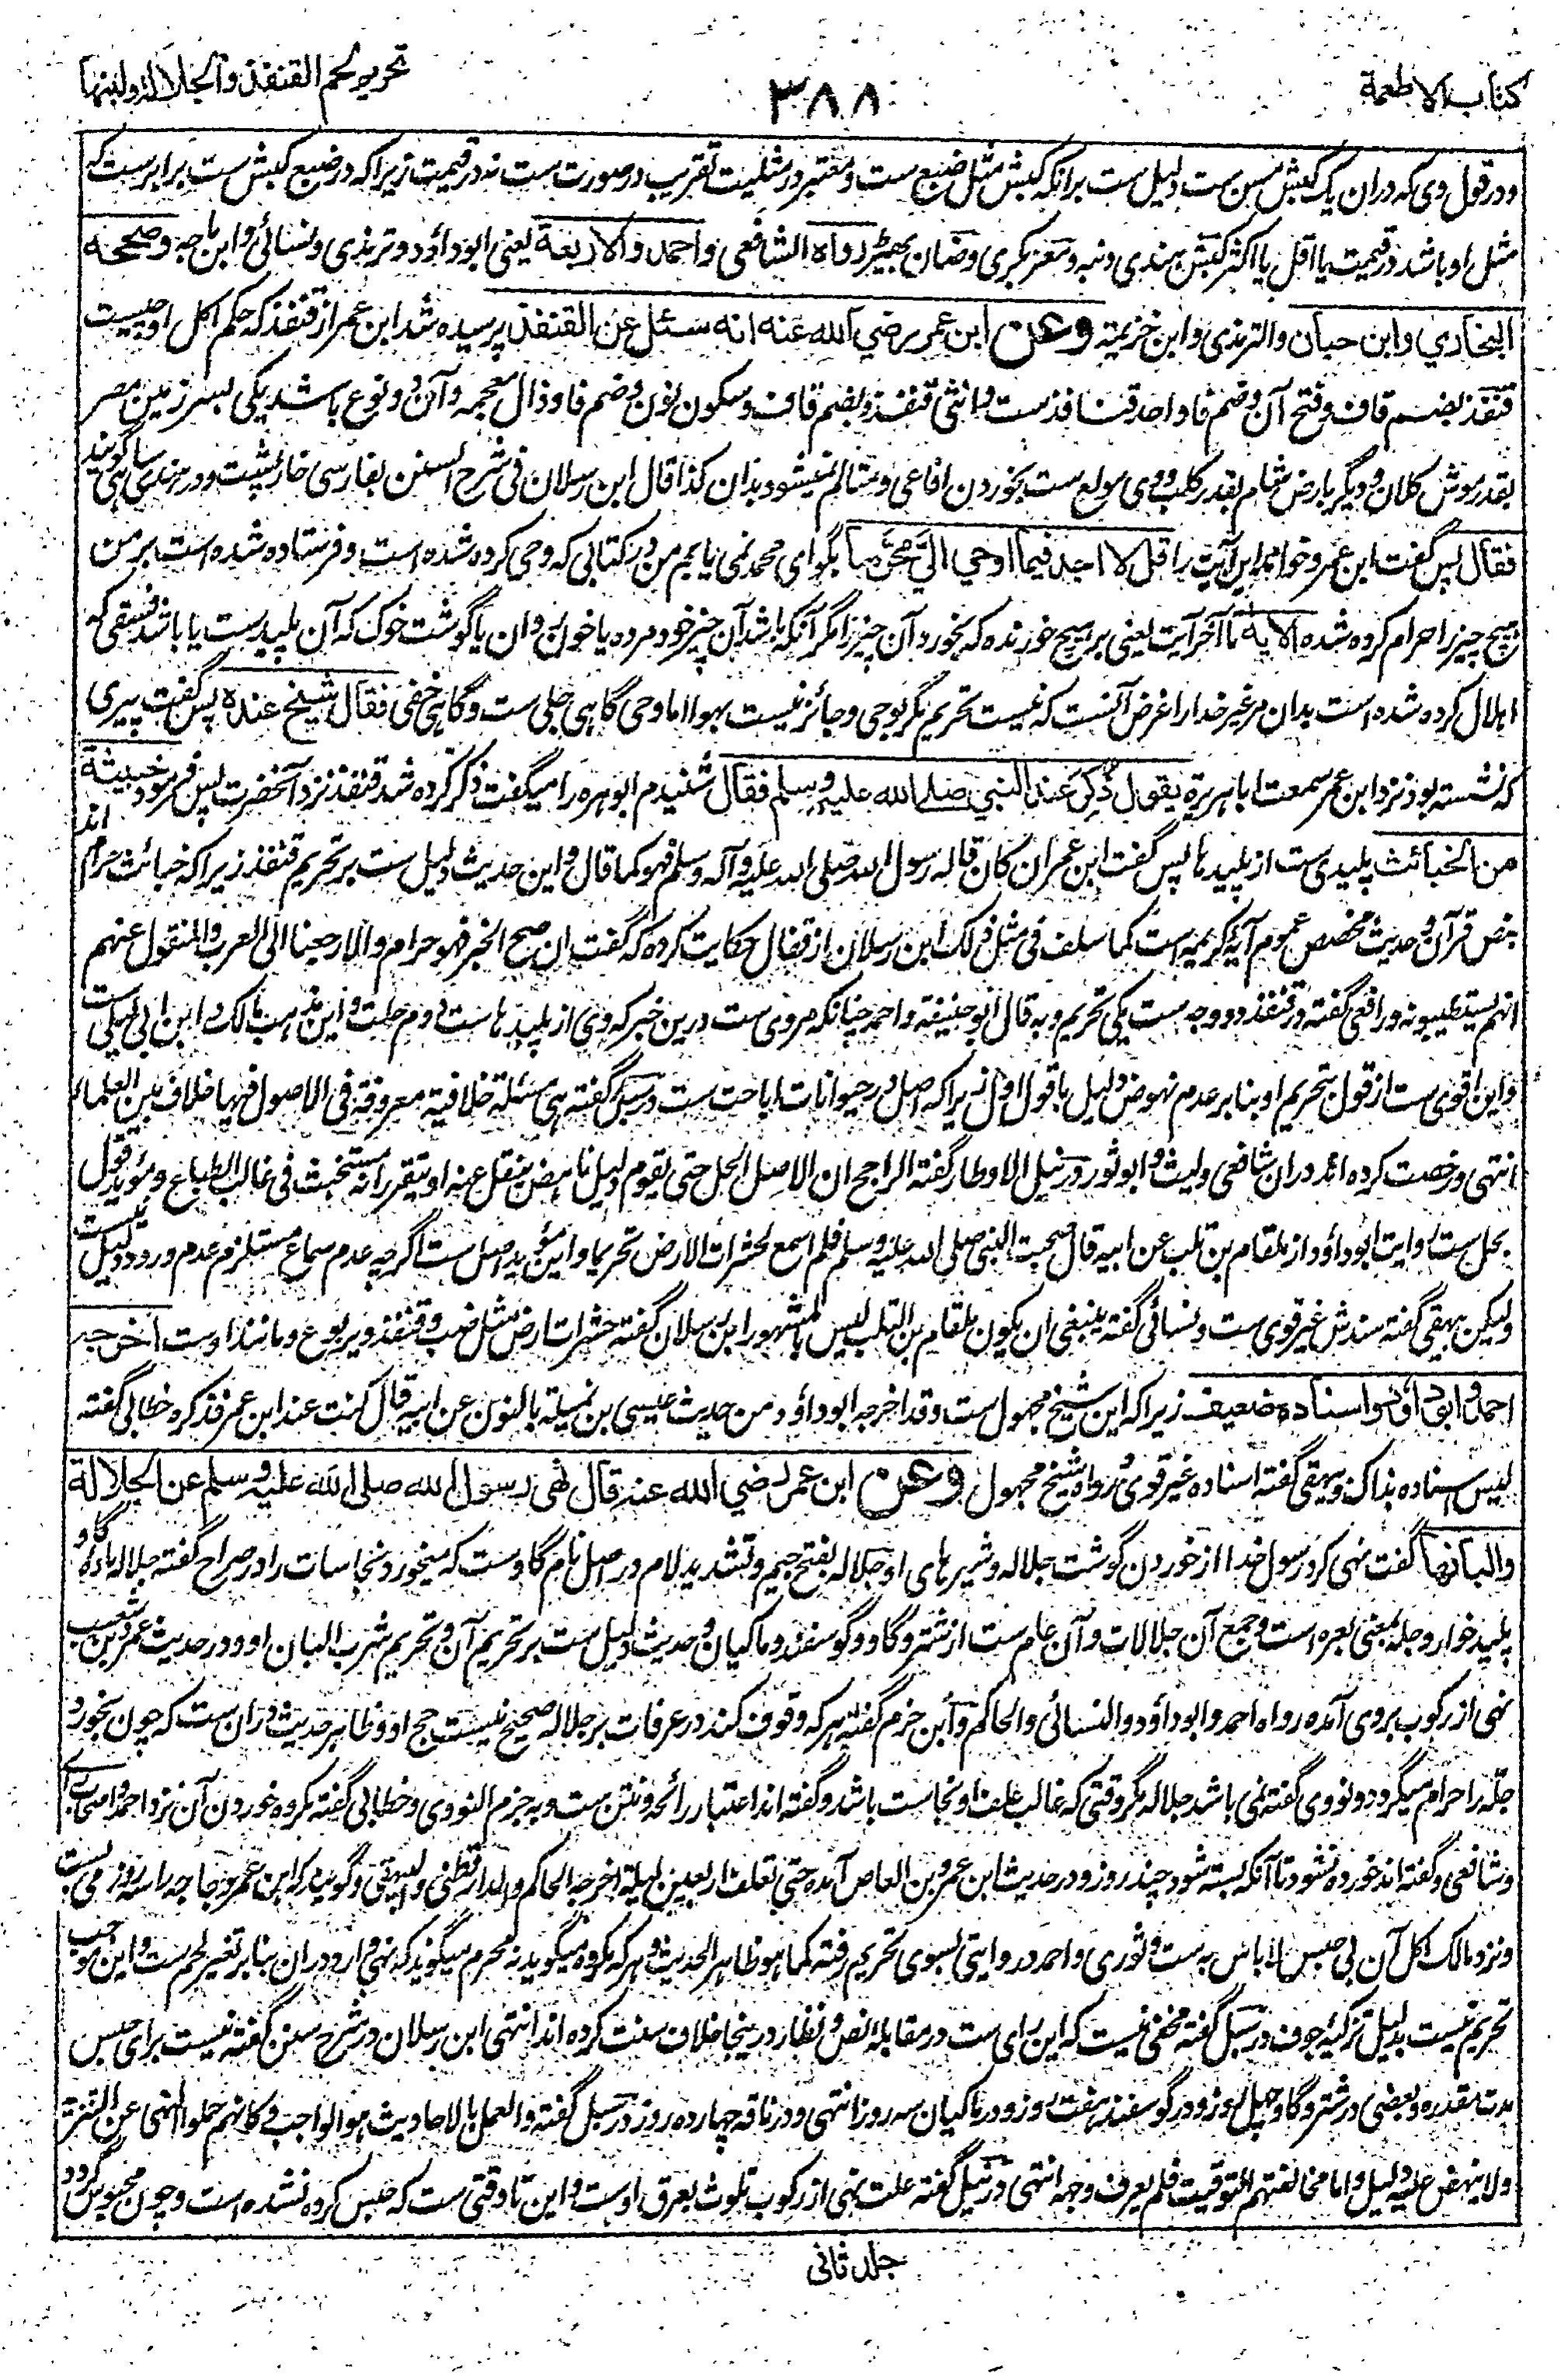 کتاب الاطعمة
۳۸۸
تحریم لحم القنفذ والجلالة ولبنها
و در قول وی که دران یک کبش مسن ست دلیل ست برانکه کبش مثل ضبع ست و معتبر در مثلیت تقریب در صورت ست نه در قیمت زیرا که در ضبع کبش ست برابرست که
مثل او باشد در قیمت یا اقل یا اکثر کبش بهندی دنبه و معز بکری و ضان بھیڑ رواه الشافعی واحمد والاربعة یعنی ابوداؤد و ترمذی و نسائی و ابن ماجه و صححه
البخاري وابن حبان والترمذی و ابن خزیمة وعن ابن عمر رضي الله عنه انه سئل عن القنفذ پرسیده شد ابن عمر از قنفذ که حکم اکل او چیست
قنفذ بضم قاف و فتح آن و ضم فا واحد قنافذ ست و انثی قنفذة بضم قاف و سکون نون و ضم فا و ذال معجمه و آن دو نوع باشد یکی بسر زمین مصر
بقدر موش کلان و دیگر بارض شام بقدر کلب و وی مولع ست بخوردن افاعی و متالم نمیشود بدان کذا قال ابن رسلان فی شرح السنن بفارسی خارپشت و در هندی ساهی گویند
فقال پس گفت ابن عمر و خواند این آیت را قل لا اجد فیما اوحي الیّ محرّما بگو ای محمد نمی یابم من در کتابی که وحی کرده شده است و فرستاده شده است بر من
هیچ چیز را حرام کرده شده الایة تا آخر آیت یعنی بر هیچ خورنده که بخورد آن چیز را مگر آنکه باشد آن چیز خود مرده یا خون روان یا گوشت خوک که آن پلید ست یا باشد فسقی که
اهلال کرده شده است بدان مر غیر خدا را غرض آنست که نیست تحریم مگر بوحی و جائز نیست بهوا اما وحی گاهی جلی ست و گاهی خفی فقال شیخ عنده پس گفت پیری
که نشسته بود نزد ابن عمر سمعت ابا هریرة یقول ذُکر عند النبي صلى الله علیه وسلم فقال شنیدم ابوهریره را میگفت ذکر کرده شد قنفذ نزد آنحضرت پس فرمود خبیثة
من الخبائث پلیدی ست از پلیدها پس گفت ابن عمر ان کان قاله رسول الله صلی الله علیه وآله وسلم فهو کما قال و این حدیث دلیل ست بر تحریم قنفذ زیرا که خبائث حرام اند
بنص قرآن و حدیث مخصص عموم آیۀ کریمه است کما سلف فی مثل ذلک ابن رسلان از قفال حکایت کرده که گفت ان صح الخبر فهو حرام والا رجعنا الی العرب والمنقول عنهم
انهم یستطیبونه و رافعی گفته در قنفذ دو وجه ست یکی تحریم و به قال ابوحنیفة و احمد چنانکه مروی ست درین خبر که وی از پلیدها ست دوم حلت و این مذهب مالک و ابن ابی لیلی ست
و این اقوی ست از قول بتحریم او بنابر عدم نهوض دلیل باقول اول زیرا که اصل در حیوانات اباحت ست در سبل گفته هی مسئلة خلافیة معروفة فی الاصول فیها خلاف بین العلماء
انتهی و رخصت کرده اند دران شافعی و لیث و ابوثور و در نیل الاوطار گفته الراجح ان الاصل الحل حتی یقوم دلیل ناهض ینقل عنه او یتقرر انه مستخبث فی غالب الطباع و مؤید قول
بحل ست روایت ابوداؤد از ملقام بن تلب عن ابیه قال صحبت النبی صلی الله علیه وسلم فلم اسمع لحشرات الارض تحریما و این مؤید اصل ست اگرچه عدم سماع مستلزم عدم ورود دلیل نیست
ولیکن بیهقی گفته سندش غیر قوی ست و نسائی گفته ینبغی ان یکون ملقام بن التلب لیس بالمشهور ابن رسلان گفته حشرات ارض مثل ضب و قنفذ و یربوع و مانند اوست اخرجه
احمد وابوداؤد واسناده ضعیف زیرا که این شیخ مجهول ست و قد اخرجه ابوداؤد من حدیث عیسی بن نمیلة بالنون عن ابیه قال کنت عند ابن عمر فذکره خطابی گفته
لیس اسناده بذاک و بیهقی گفته اسناده غیر قوی و رواه شیخ مجهول وعن ابن عمر رضي الله عنه قال نهى رسول الله صلى الله علیه وسلم عن الجلالة
والبانها گفت نهی کرد رسول خدا از خوردن گوشت جلاله و شیرهای او جلاله بفتح جیم و تشدید لام در اصل نام گاو ست که میخورد نجاسات را در صراح گفته جلاله ماده گاو
پلید خوار و جله بمعنی بعره است و جمع آن جلالات و آن عام ست از شتر و گاو و گوسفند و ماکیان و حدیث دلیل ست بر تحریم آن و تحریم شرب البان او و در حدیث عمرو بن شعیب
نهی از رکوب بروی آمده رواه احمد و ابوداؤد والنسائی والحاکم و ابن حزم گفته هر که وقوف کند در عرفات بر جلاله صحیح نیست حج او و ظاهر حدیث دران ست که چون بخورد
جله را حرام میگردد و نووی گفته نمی باشد جلاله مگر وقتی که غالب علف او نجاست باشد و گفته اند اعتبار رائحه و نتن ست و به جزم النووی و خطابی گفته مکروه خوردن آن نزد احمد و اصحاب رای
و شافعی و گفته اند خورده نشود تا آنکه بسته شود چند روز و در حدیث ابن عمرو بن العاص آمده حتی تعلف اربعین لیلة اخرجه الحاکم والدارقطنی والبیهقی و گویند که ابن عمر دجاجه را سه روز می بست
و نزد مالک اکل آن بی حبس لا باس به ست و ثوری و احمد در روایتی بسوی تحریم رفته کما هو ظاهر الحدیث و هر که مکروه میگوید نه محرم میگوید که نهی وارد دران بنابر تغیر لحم ست و این موجب
تحریم نیست بدلیل تزکیۀ جوف و در سبل گفته مخفی نیست که این رای ست در مقابلۀ نص و نظار در ینجا خلاف سنت کرده اند انتهی ابن رسلان در شرح سنن گفته نیست برای حبس
مدت مقدره و بعضی در شتر و گاو چهل روز و در گوسفند هفت روز و در ماکیان سه روز انتهی و در ناقه چهارده روز در سبل گفته والعمل بالاحادیث هو الواجب و کانهم حملوا النهی عن التنزه
ولا ینهض علیه دلیل و اما مخالفتهم التوقیت فلم یعرف وجهه انتهی در نیل گفته علت نهی از رکوب تلوث بعرق اوست و این تا وقتی ست که حبس کرده نشده است و چون محبوس گردد
جلد ثانی